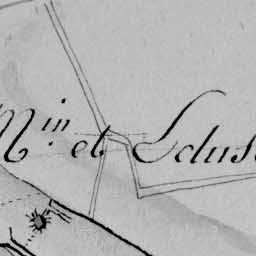 Min. et Eclus